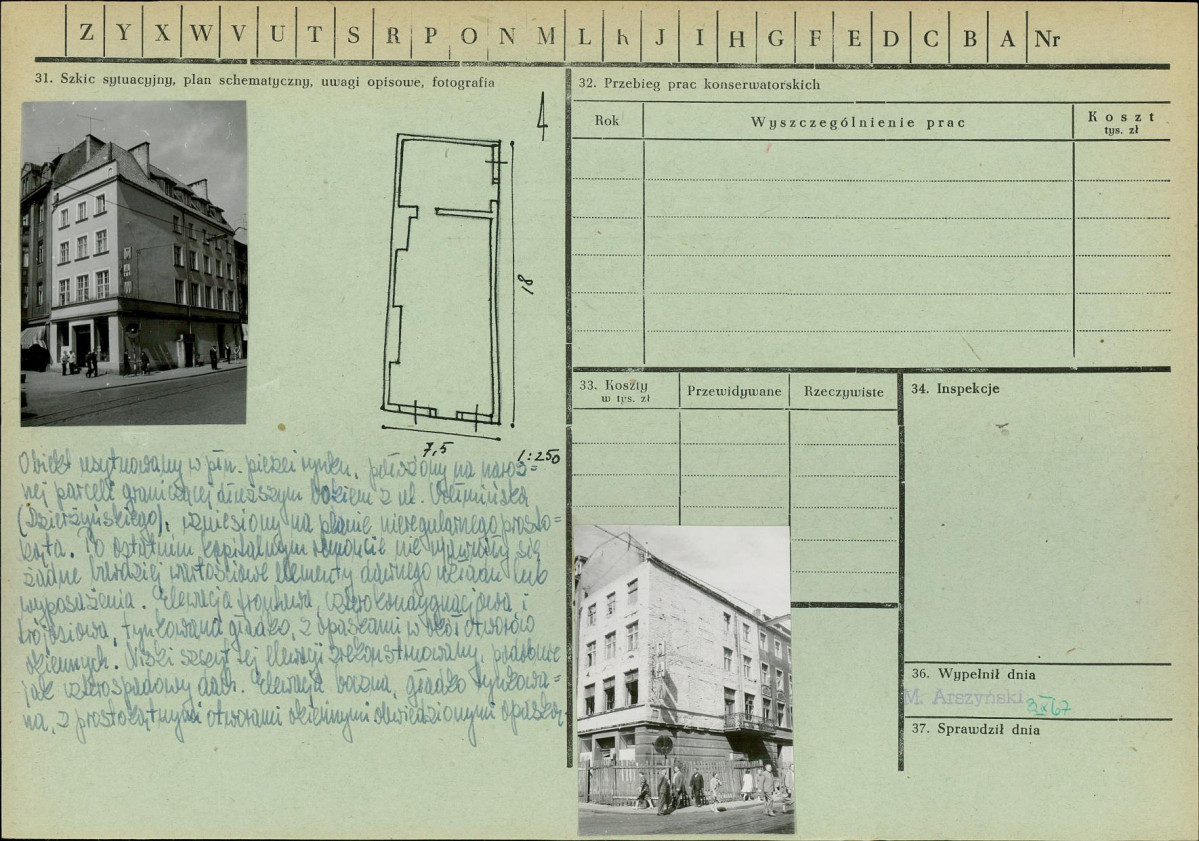 Z Y X W V U T S R P O N M L h J I H G F E D C B A Nr
31. Szkic sytuacyjny, plan schematyczny, uwagi opisowe, fotografia
4
18
7,5
1:250
Obiekt usytuowany w płn. pierzei rynku, położony na naroż=
nej parceli graniczącej dłuższym bokiem z ul.
(Dzierżyńskiego), wzniesiony na planie nieregularnego prosto=
kąta. Po ostatnim kapitalnym remoncie nie się
żadne bardziej wartościowe elementy dawnego układu lub
wyposażenia. Elewacja frontowa, czterokondygnacjowa i
trójosiowa, tynkowana gładko, z opaskami w okół otworów
okiennych. Niski szczyt tej elewacji zrekonstruowany, podobnie
jak czterospadowy dach. Elewacja boczna, gładko tynkowa=
na, z prostokątnymi otworami okiennymi obwiedzionymi opaską
32. Przebieg prac konserwatorskich
Rok
Wyszczególnienie prac
Koszt
tys. zł
33. Koszty
w tys. zł
Przewidywane
Rzeczywiste
34. Inspekcje
36. Wypełnił dnia
M. Arszyński
37. Sprawdził dnia